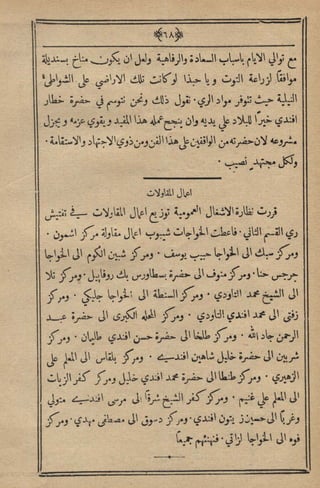 ﴿٦٨﴾
مع توالي الايام باسباب السعادة والرفاهية ولعل ان يكون مناخ بسنديلة
موافقًا لزراعة التوت ويا حبذا لو كانت تلك الاراضي على الشواطئ
النيلية حيث تتوفر مواد الري. نقول ذلك ونحن نتوسم في حضرة خطار
افندي خيرًا للبلاد على يديه وان ينجح عمله هذا المفيد ويقوي عزمه ويجزل
مشروعه لان حضرته من الواقفين على هذا الفن ومن ذوي الاجتهاد والاستقامة.
ولكل مجتهد نصيب.
اعمال المقاولات
قررت نظارة الاشغال العمومية توزيع اعمال المقاولات في تفتيش
ري القسم الثاني. فاعطت الخواجات شيبوب اعمال مقاولة مركز اشمون.
ومركز سبك الى الخواجا حبيب يوسف. ومركز شبين الكوم الى الخواجا
جرجس حنا. ومركز منوف الى حضرة بسطاورس بك روفاييل. ومركز تلا
الى الشيخ محمد التاودي. ومركز السنطة الى الخواجا جليكي. ومركز
زفتى الى محمد افندي التاودي. ومركز المحله الكبرى الى حضرة عبد
الرحمن جاد الله. ومركز طلخا الى حضرة حسن افندي طالبان. ومركز
شربين الى حضرة خليل شاهين افندي. ومركز بلقاس الى المعلم علي
الزهيري. ومركز طنطا الى حضرة محمد افندي خليل ومركز كفر الزيات
الى المعلم علي غنيم. ومركز كفر الشيخ شرقًا الى مرسى افندي متولي
وغربًا الى حسين زيتون افندي. ومركز دسوق الى مصطفى مهدي. ومركز
فوه الى الخواجا لزاتي. فنهنئهم جميعًا